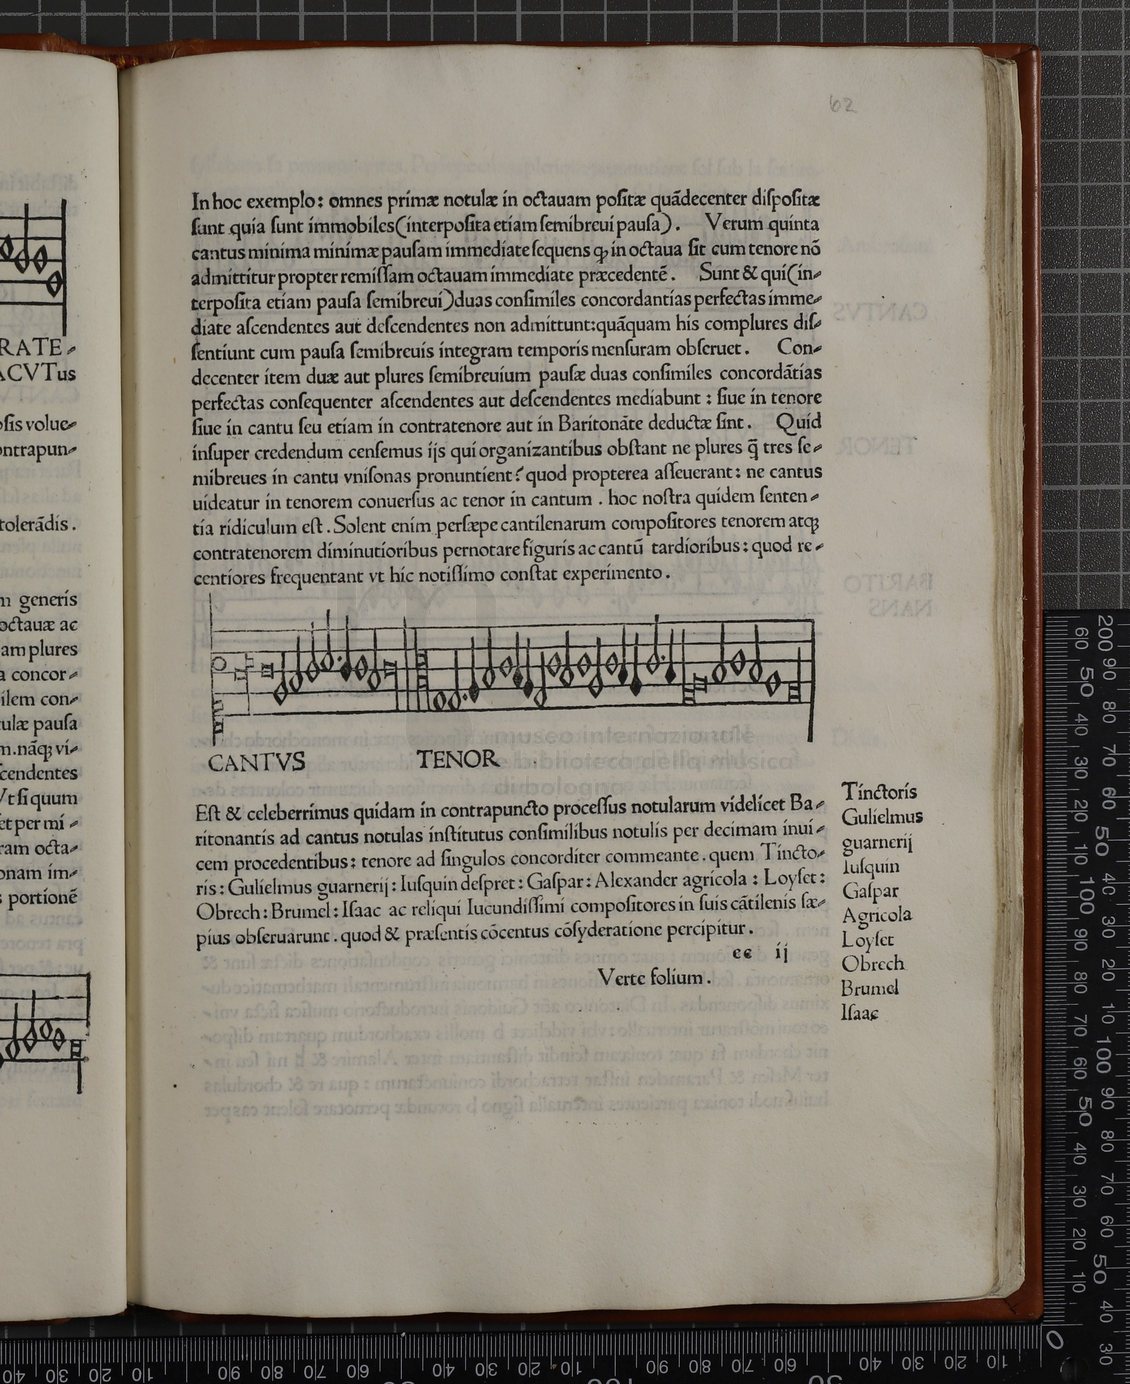 62
In hoc exemplo: omnes primæ notulæ in octauam poſitæ quãdecenter diſpoſitæ
ſunt quia ſunt immobiles(interpoſita etiam ſemibreui pauſa). Verum quinta
cantus minima minimæ pauſam immediate ſequens ꝙ in octaua ſit cum tenore nõ
admittitur propter remiſſam octauam immediate præcedentẽ. Sunt & qui(in-
terpoſita etiam pauſa ſemibreui)duas conſimiles concordantias perfectas imme-
diate aſcendentes aut deſcendentes non admittunt:quãquam his complures diſ-
ſentiunt cum pauſa ſemibreuis integram temporis menſuram obſeruet. Con-
decenter item duæ aut plures ſemibreuium pauſæ duas conſimiles concordãtias
perfectas conſequenter aſcendentes aut deſcendentes mediabunt : ſiue in tenore
ſiue in cantu ſeu etiam in contratenore aut in Baritonãte deductæ ſint. Quid
inſuper credendum cenſemus ijs qui organizantibus obſtant ne plures q̃ tres ſe-
mibreues in cantu vniſonas pronuntient? quod propterea aſſeuerant: ne cantus
uideatur in tenorem conuerſus ac tenor in cantum . hoc noſtra quidem ſenten-
tia ridiculum eſt . Solent enim perſæpe cantilenarum compoſitores tenorem atqꝫ
contratenorem diminutioribus pernotare figuris ac cantũ tardioribus: quod re-
centiores frequentant vt hic notiſſimo conſtat experimento.
CANTVS TENOR
museo internazionale
e biblioteca della musica
di bologna
Eſt & celeberrimus quidam in contrapuncto proceſſus notularum videlicet Ba-
ritonantis ad cantus notulas inſtitutus conſimilibus notulis per decimam inui-
cem procedentibus: tenore ad ſingulos concorditer commeante . quem Tincto-
ris : Gulielmus guarnerij : Iuſquin deſpret : Gaſpar : Alexander agricola : Loyſet :
Obrech : Brumel : Iſaac ac reliqui Iucundiſſimi compoſitores in ſuis cãtilenis ſæ-
pius obſeruarunt . quod & præſentis cõcentus cõſyderatione percipitur.
ee ij
Verte folium.
Tinctoris
Gulielmus
guarnerij
Iuſquin
Gaſpar
Agricola
Loyſet
Obrech
Brumel
Iſaac